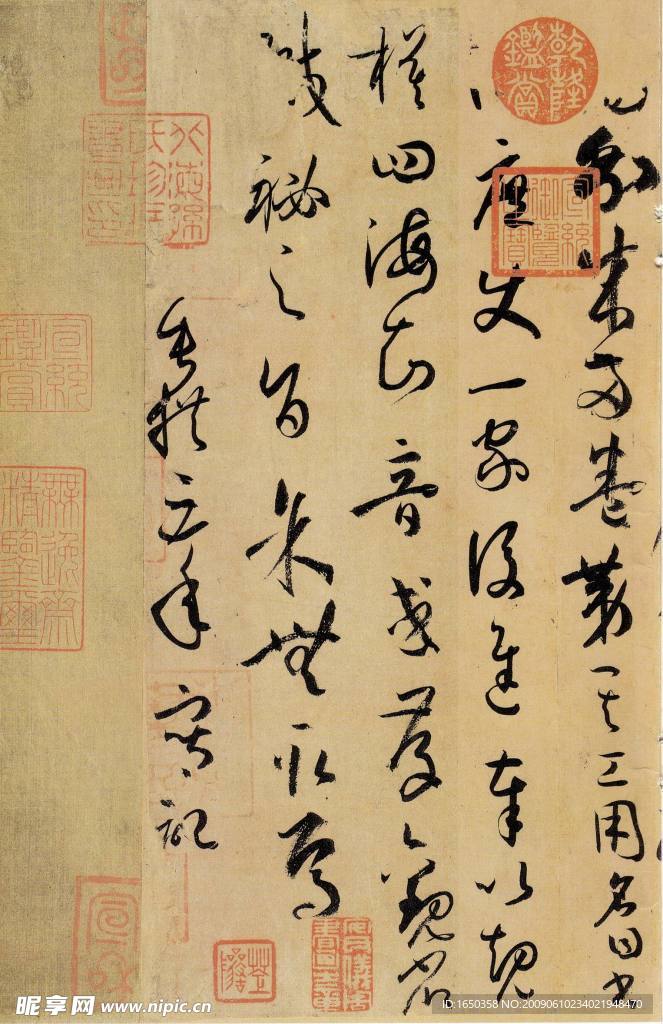 乾隆鑑賞
宣統御覽之寶
兩卷第其工用名曰書
庶使一家後進奉以規
模四海知音或存觀省
緘秘之旨余無取焉
垂拱三年寫記
宣統鑑賞
無逸齋精鑒璽
昵享网 www.nipic.cn
ID:1650358 NO:20090610234021948470